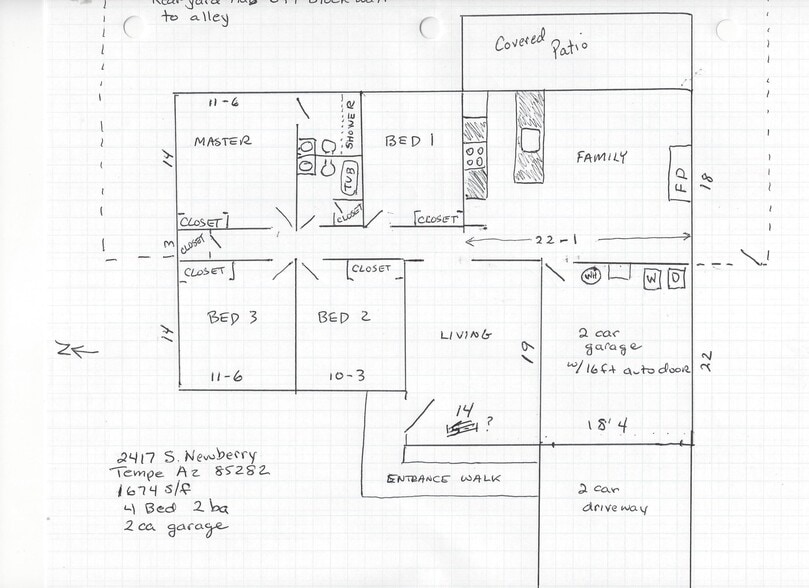 to alley
Covered Patio
11-6
MASTER
14
SHOWER
TUB
BED 1
FAMILY
FP
18
CLOSET
CLOSET
CLOSET
CLOSET
3
22-1
CLOSET
CLOSET
WH
W
D
BED 3
BED 2
LIVING
14
19
2 car
garage
w/16ft auto door
22
N
11-6
10-3
14
?
18'4
ENTRANCE WALK
2 car
driveway
2417 S. Newberry
Tempe Az 85282
1674 s/f
4 Bed 2 ba
2 ca garage